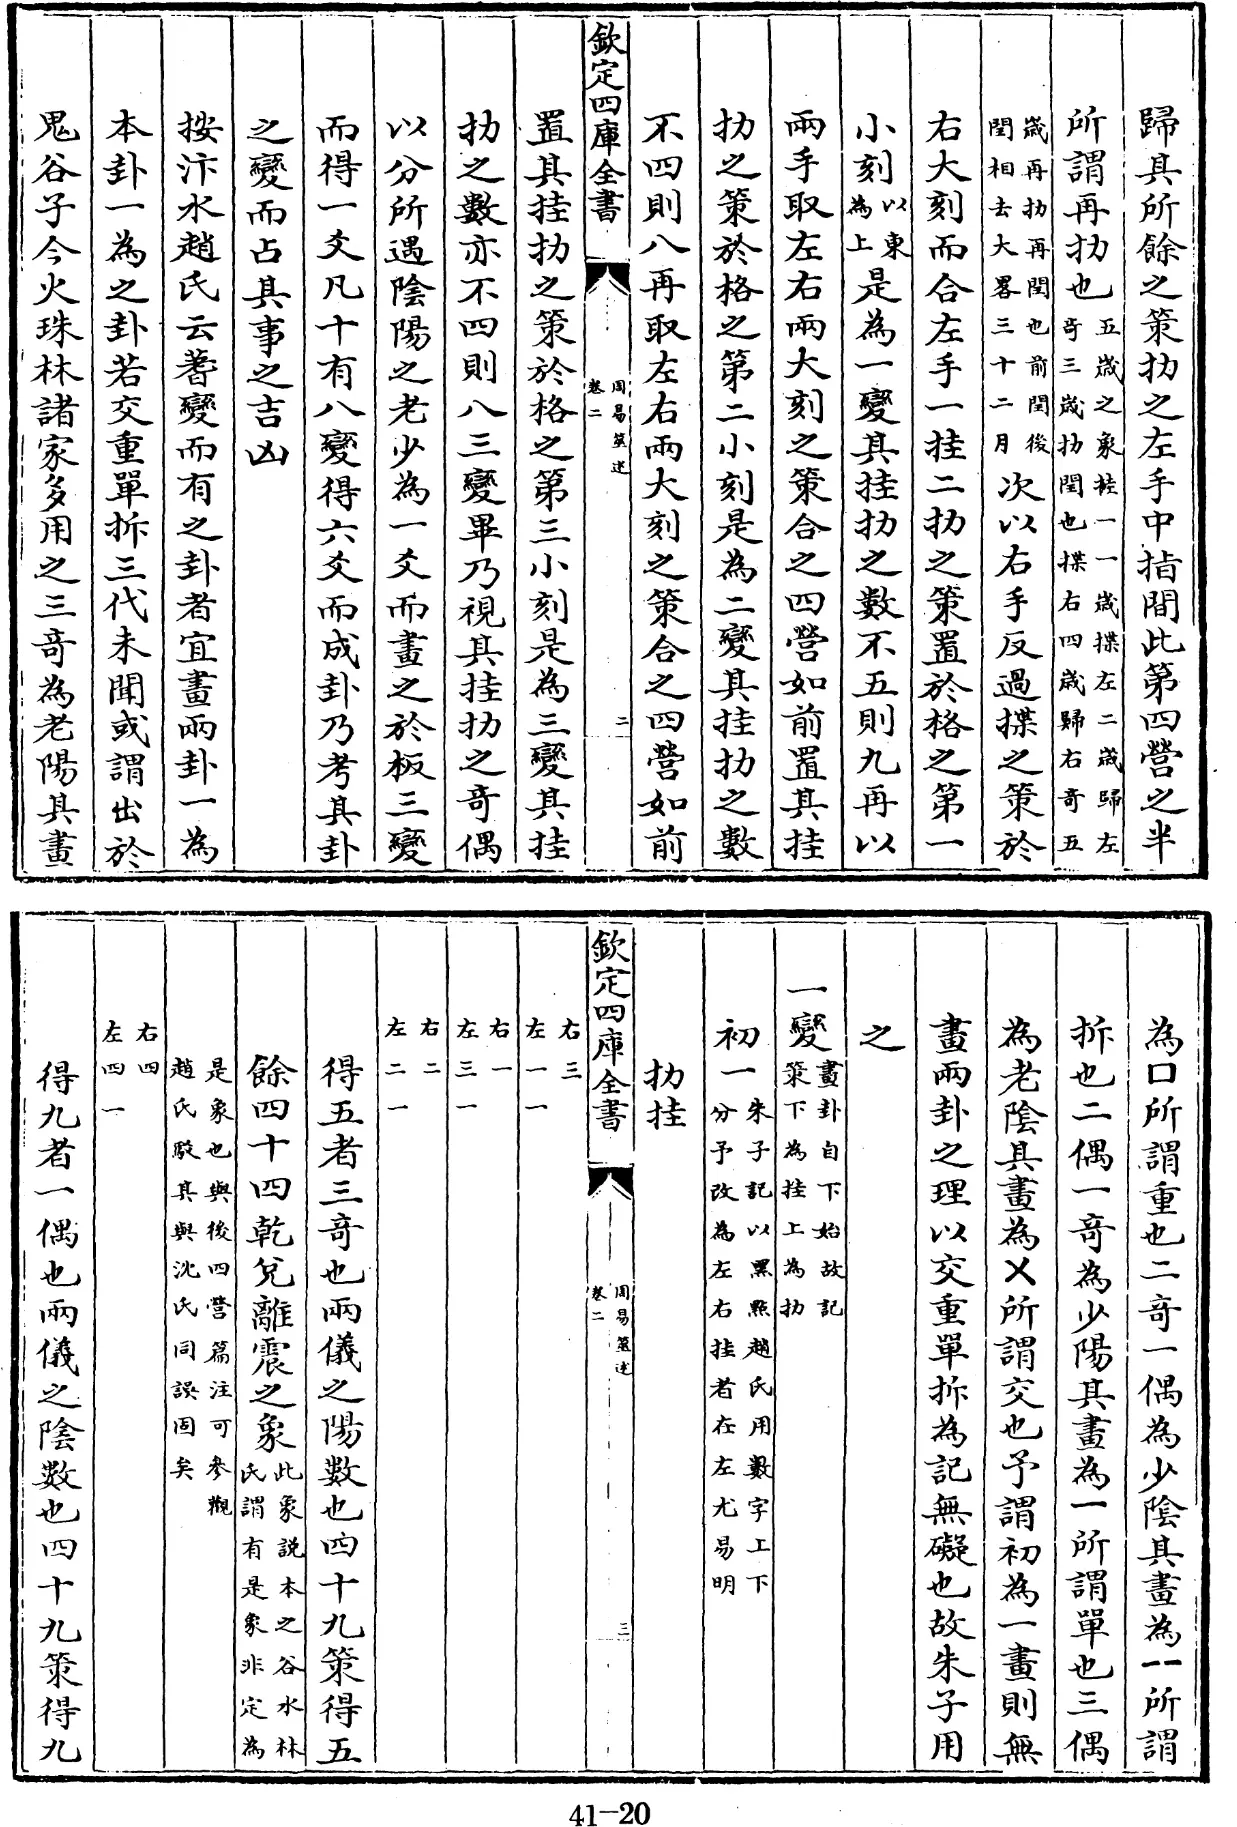 歸其所餘之策扐之左手中指間此第四營之半
所謂再扐也五歲之象掛一一歲揲左二歲歸左
奇三歲扐閏也揲右四歲歸右奇五
歲再扐再閏也前閏後
閏相去大畧三十二月次以右手反過揲之策於
右大刻而合左手一挂二扐之策置於格之第一
小刻以東
為上是為一變其挂扐之數不五則九再以
兩手取左右兩大刻之策合之四營如前置其挂
扐之策於格之第二小刻是為二變其挂扐之數
不四則八再取左右兩大刻之策合之四營如前
欽定四庫全書
周易筮述
卷二
二
置其挂扐之策於格之第三小刻是為三變其挂
扐之數亦不四則八三變畢乃視其挂扐之奇偶
以分所遇陰陽之老少為一爻而畫之於板三變
而得一爻凡十有八變得六爻而成卦乃考其卦
之變而占其事之吉凶
按汴水趙氏云蓍變而有之卦者宜畫兩卦一為
本卦一為之卦若交重單拆三代未聞或謂出於
鬼谷子今火珠林諸家多用之三奇為老陽其畫
為口所謂重也二奇一偶為少陰其畫為一一所謂
拆也二偶一奇為少陽其畫為一所謂單也三偶
為老陰其畫為㐅所謂交也予謂初為一畫則無
畫兩卦之理以交重單拆為記無礙也故朱子用
之
一變畫卦自下始故記
策下為挂上為扐
初一朱子記以黑點趙氏用數字上下
分予改為左右挂者在左尤易明
扐挂
欽定四庫全書
周易筮述
卷二
三
右三
左一一
右一
左三一
右二
左二一
得五者三奇也兩儀之陽數也四十九策得五
餘四十四乾兌離震之象此象説本之谷水林
氏謂有是象非定為
是象也與後四營篇注可參觀
趙氏駁其與沈氏同誤固矣
右四
左四一
得九者一偶也兩儀之陰數也四十九策得九
41-20